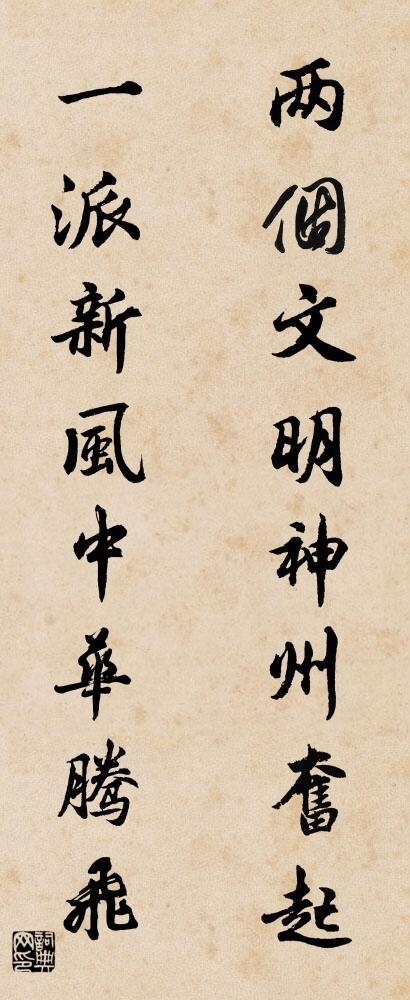 两個文明神州奮起
一派新風中華騰飛
詞典网印